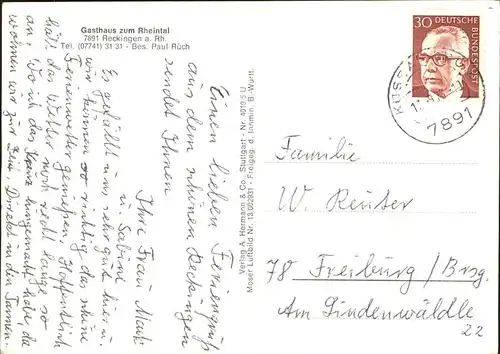 Gasthaus zum Rheintal
7891 Reckingen a. Rh.
Tel. (07741) 31 31 - Bes. Paul Rüch
Einen lieben Feriengruß
aus dem schönen Reckingen
sendet Ihnen
Ihre Frau
u. Sabine
Es gefällt uns sehr gut hier u.
wir können so richtig das schöne
Ferienwetter genießen. Hoffentlich
hält das Wetter noch recht lange so
an. Wo ich das kreuz hingemacht habe, da
wohnen wir zur Zeit. Direkt in den Tannen.
Verlag A. Hermann & Co., Stuttgart - Nr. 4019/5 U
Moser Luftbild Nr. 13/00283 - Freigeg. d. Innmin. B.-Württ.
30 DEUTSCHE
BUNDESPOST
7891
Familie
W. Reuter
78 Freiburg / Brsg.
Am Lindenwäldle
22